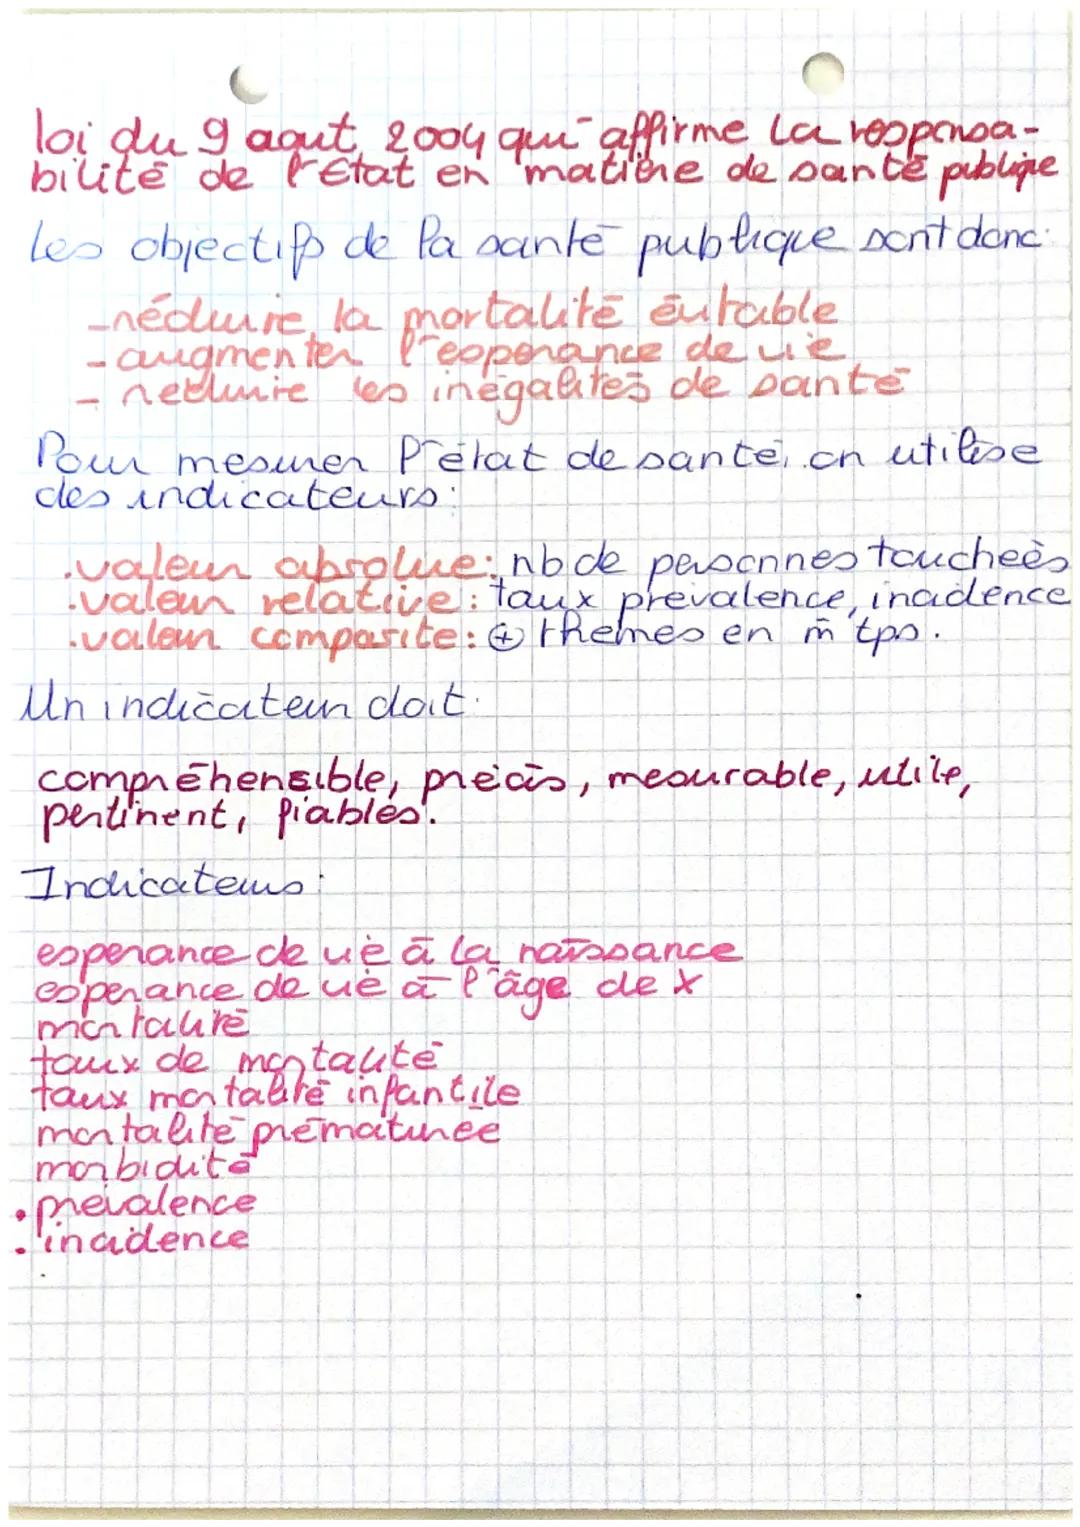 loi du 9 aout 2004 qui affirme la responsa-
bilité de l'Etat en matière de santé publique
Les objectifs de la santé publique sont donc:
-réduire la mortalité évitable
-augmenter l'espérance de vie
- réduire les inégalités de santé
Pour mesurer l'état de santé, on utilise
des indicateurs:
.valeur absolue: nb de personnes touchées
.valeur relative: taux prévalence, incidence
.valeur composite: ⊕ thèmes en m̂ tps.
Un indicateur doit:
compréhensible, précis, mesurable, utile,
pertinent, fiables.
Indicateurs:
espérance de vie à la naissance
espérance de vie à l'âge de x
mortalité
taux de mortalité
taux mortalité infantile
mortalité prématurée
morbidité
•prévalence
•incidence